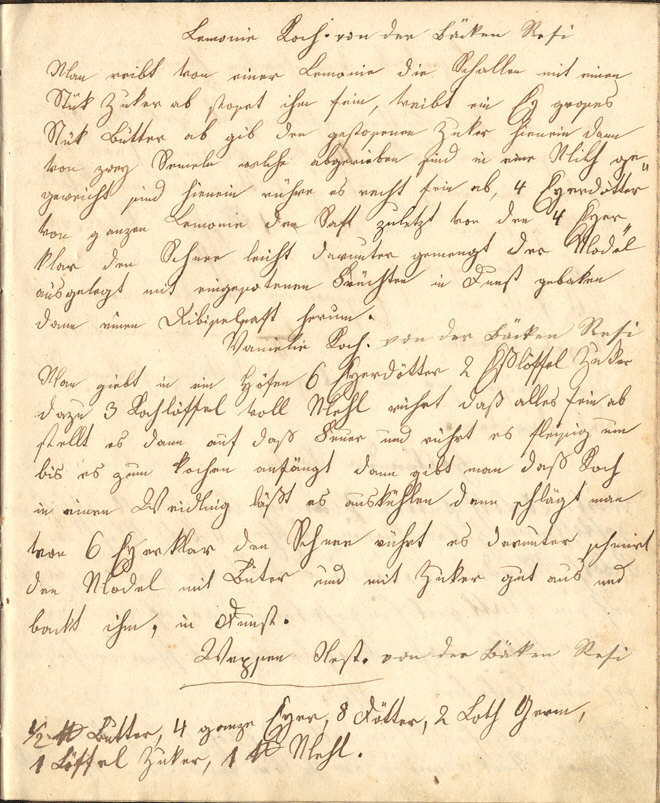 Lemonie Koch. von der Bäcken Resi
Man reibt von einer Lemonie die Schallen mit einen
Stük Zuker ab stosset ihm fein, treibt ein Ey groses
Stük Butter ab gib den gestosenen Zuker hienein dann
von zwey Semeln welche abgerieben sind in eine Milch ge"
geweicht sind hienein rühre es recht fein ab, 4 Eyerdötter
von ganzen Lemonie den Saft zuletzt von den 4 Eyer"
klar den Schnee leicht darunter gemengt der Model
ausgelegt mit eingesotenen Früchten in Dunst gebaken
dann einen Ribiselsaft herum.
Vanielie Koch. von der Bäcken Resi
Man giebt in ein Höfen 6 Eyerdötter 2 Eßlöffel Zuker
dazu 3 Kochlöffel voll Mehl rührt daß alles fein ab
stellt es dann auf daß Feuer und rührt es fleisig um
bis es zum kochen anfängt dann gibt man daß Koch
in einen Weidling läßt es auskühlen dann schlägt man
von 6 Eyerklar den Schnee rührt es darunter schmirt
den Model mit Buter und mit Zuker gut aus und
bakt ihm, in Dunst.
Weppen Nest. von der Bäcken Resi
1/2 ℔ Butter, 4 ganze Eyer, 8 Dötter, 2 Loth Germ,
1 Löffel Zuker, 1 ℔ Mehl.